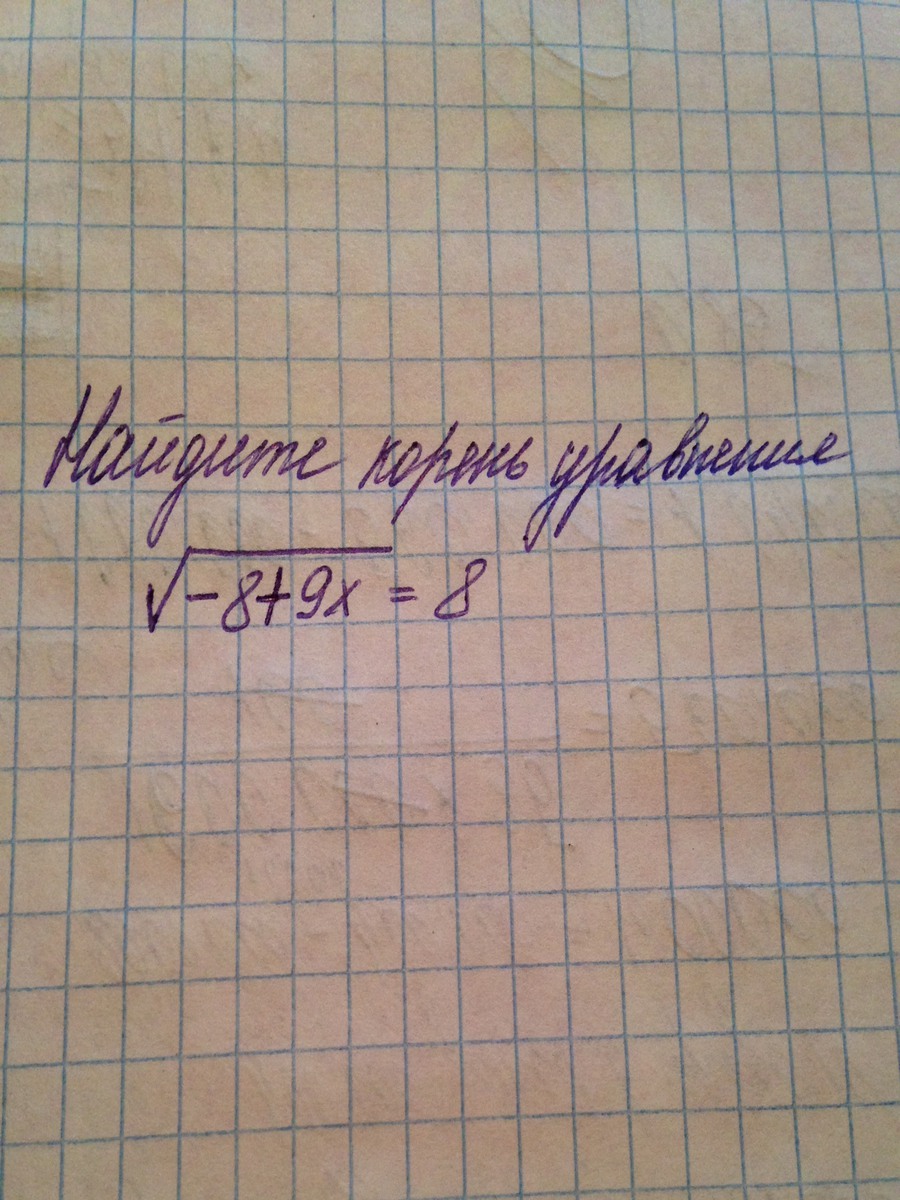 Найдите корень уравнения
√-8+9x = 8